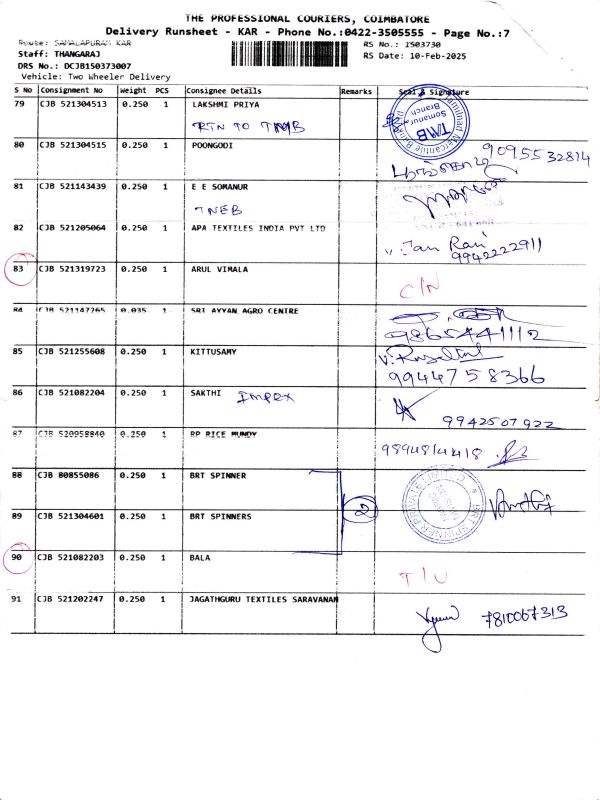 THE PROFESSIONAL COURIERS, COIMBATORE
Delivery Runsheet - KAR - Phone No.:0422-3505555 - Page No.:7
Route: SAMALAPURAM KAR
RS No.: I503730
Staff: THANGARAJ
RS Date: 10-Feb-2025
DRS No.: DCJB150373007
Vehicle: Two Wheeler Delivery
S No Consignment No Weight PCS Consignee Details Remarks Seal & Signature
79 CJB 521304513 0.250 1 LAKSHMI PRIYA
RTN TO TMB
Tamilnad Mercantile Bank
TMB
Somanur
Branch
80 CJB 521304515 0.250 1 POONGODI 9095532814
81 CJB 521143439 0.250 1 E E SOMANUR
TNEB
82 CJB 521205064 0.250 1 APA TEXTILES INDIA PVT LTD
9942222911
83 CJB 521319723 0.250 1 ARUL VIMALA C/N
84 CJB 521147265 0.035 1 SRI AYYAN AGRO CENTRE
9865441112
85 CJB 521255608 0.250 1 KITTUSAMY
9944758366
86 CJB 521082204 0.250 1 SAKTHI IMPEX
9942507922
87 CJB 520958840 0.250 1 RP RICE MUNDY
9894814418
88 CJB 80855086 0.250 1 BRT SPINNER
2
BRT SPINNER PRIVATE LIMITED
89 CJB 521304601 0.250 1 BRT SPINNERS
90 CJB 521082203 0.250 1 BALA T/U
91 CJB 521202247 0.250 1 JAGATHGURU TEXTILES SARAVANAN
7810067313